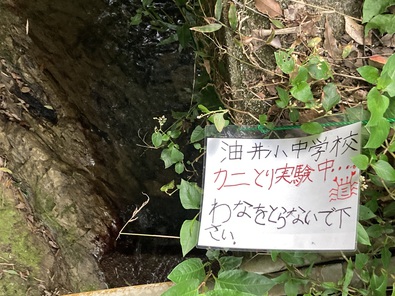 油井小中学校
カニとり実験中...
わなをとらないで下
さい.